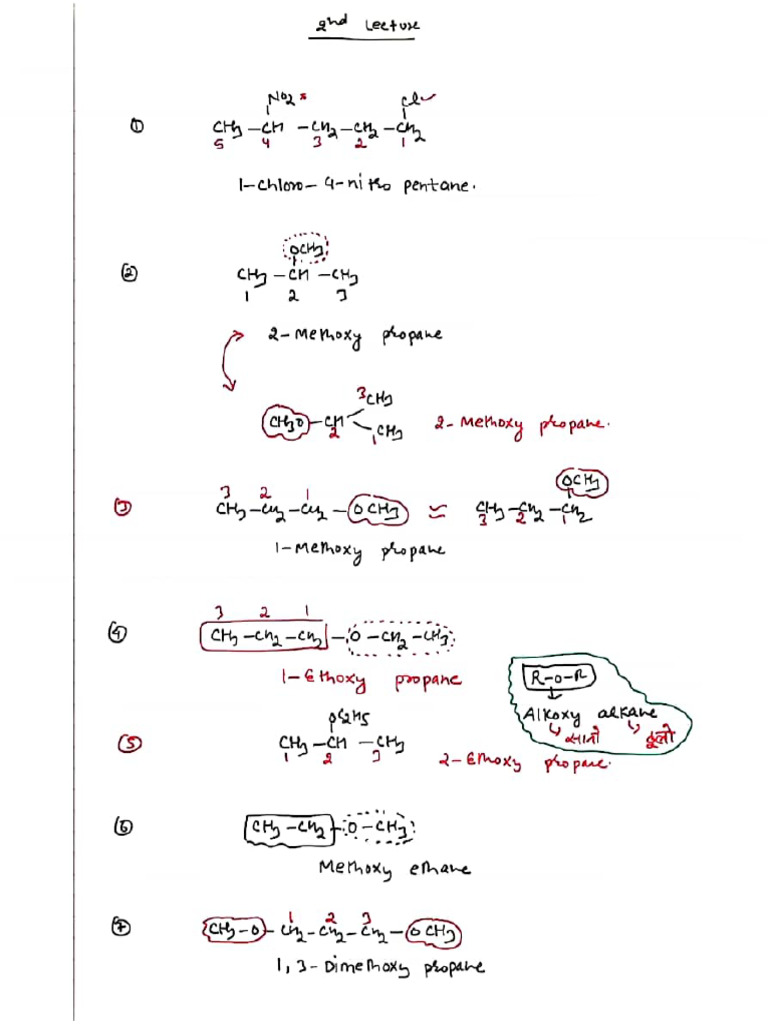 2nd Lecture
① NO2 * Cl
CH3 – CH – CH2 – CH2 – CH2
5 4 3 2 1
1-chloro-4-nitro pentane.
② OCH3
CH3 – CH – CH3
1 2 3
2-Methoxy propane
3 CH3
CH3O – CH
2 1 CH3 2-Methoxy propane.
③ 3 2 1 OCH3
CH3 – CH2 – CH2 – OCH3 ≈ CH3 – CH2 – CH2
3 2 1
1-Methoxy propane
④ 3 2 1
CH3 – CH2 – CH2 – O – CH2 – CH3
1-Ethoxy propane
R-O-R
Alkoxy alkane
सानो ठूलो
⑤ OC2H5
CH3 – CH – CH3
1 2 3
2-Ethoxy propane.
⑥ CH3 – CH2 – O – CH3
Methoxy ethane
⑦ 1 2 3
CH3-O – CH2 – CH2 – CH2 – OCH3
1,3-Dimethoxy propane